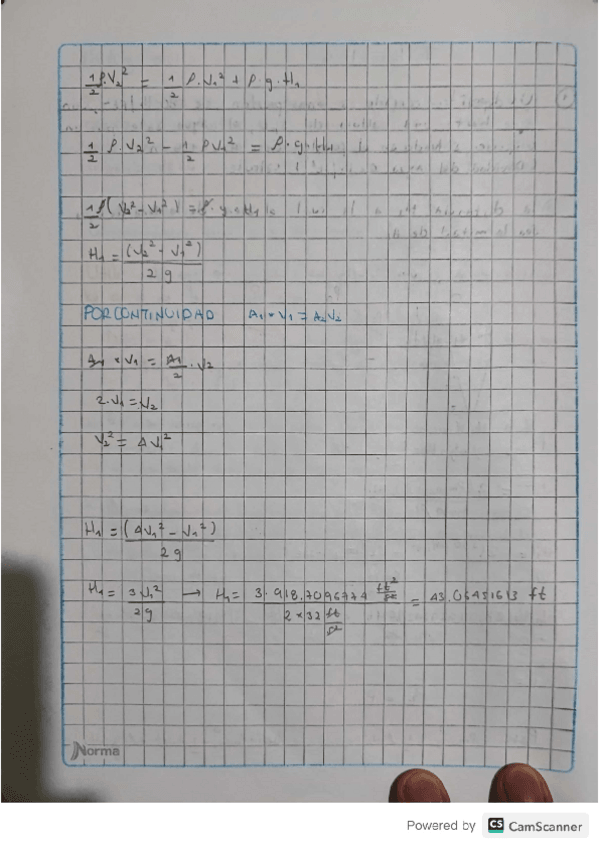 1/2 ρV₂² = 1/2 ρ.V₁² + ρ.g.H₁
1/2 ρ.V₂² - 1/2 ρV₁² = ρ.g.H₁
1/2 ρ(V₂² - V₁²) = ρ.g.H₁
H₁ = (V₂² - V₁²) / 2g
POR CONTINUIDAD A₁*V₁ = A₂V₂
A₁ * V₁ = A₁/2 . V₂
2.V₁ = V₂
V₂² = 4V₁²
H₁ = (4V₁² - V₁²) / 2g
H₁ = 3V₁² / 2g → H₁ = 3.918.7096774 ft²/s² / 2*32 ft/s² = 43.06451613 ft
Norma
Powered by CS CamScanner